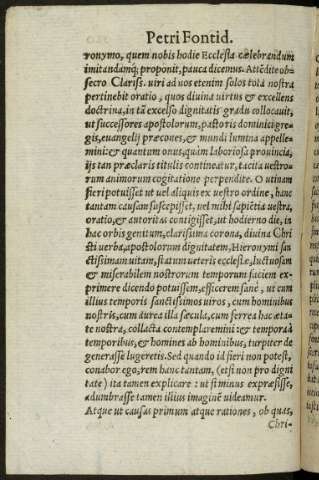 Petri Fontid.
ronymo, quem nobis hodie Ecclesia cælebrandum
imitandamq́; proponit, pauca dicemus. Attẽdite ob-
secro Clariss. uiri ad uos etenim solos tota nostra
pertinebit oratio, quos diuina uirtus & excellens
doctrina, in tã excelso dignitatis gradu collocauit,
ut successores apostolorum, pastoris dominici gre-
gis, euangelij præcones, & mundi lumina appelle-
mini: & quantum onus, quàm laboriosa prouincia,
ijs tan præclaris titulis contineatur, tacita uestro-
rum animorum cogitatione perpendite. O utinam
fieri potuisset ut uel aliquis ex uestro ordine, hanc
tantam causam suscepisset, uel mihi sapiẽtia uestra,
oratio, & autoritas contigisset, ut hodierno die, in
hac orbis gentium, clarissima corona, diuina Chri
sti uerba, apostolorum dignitatem, Hieronymi san
ctissimam uitam, statum ueteris ecclesiæ, luctuosam
& miserabilem nostrorum temporum faciem ex-
primere dicendo potuissem, efficerem sanè, ut cum
illius temporis sanctissimos uiros, cum hominibus
nostris, cum durea illa sæcula, cum ferrea hac æta-
te nostra, collacta contemplaremini: & tempora à
temporibus, & homines ab hominibus, turpiter de
generasse lugeretis. Sed quando id fieri non potest,
conabor ego, rem hanc tantam, (etsi non pro digni
tate) ita tamen explicare: ut si minus expræssisse,
adumbrasse tamen illius imaginẽ uideamur.
Atque ut causas primum atque rationes, ob quas,
Chri-